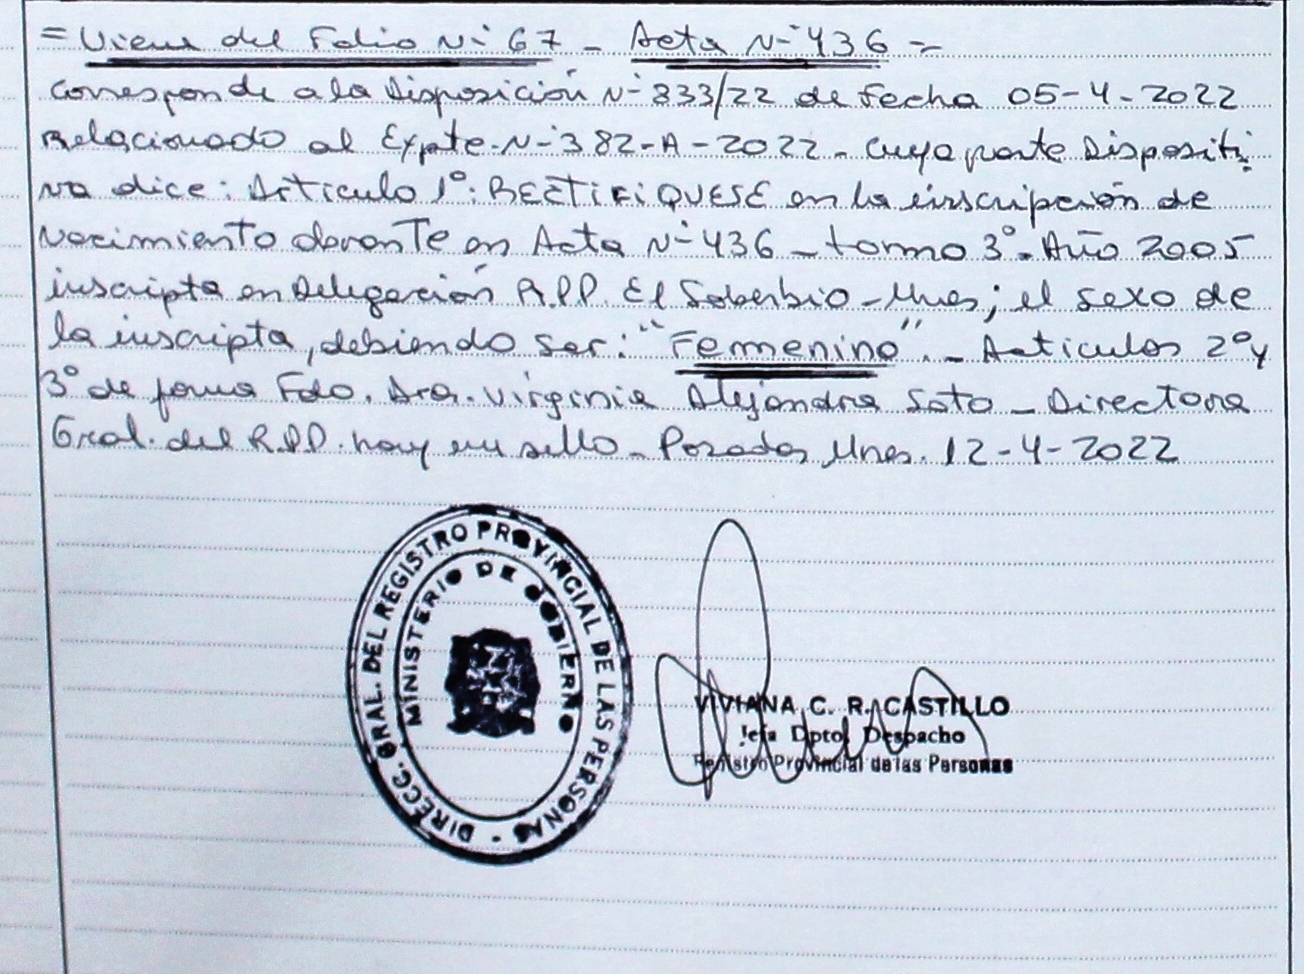 = Viene del Folio N° 67 - Acta N° 436 =
Corresponde a la Disposición N° 833/22 de fecha 05-4-2022
Relacionado al Expte. N° 382-A-2022 - cuya parte Dispositi
va dice: Articulo 1º: RECTIFIQUESE en la inscripción de
Nacimiento obrante en Acta N° 436 - tomo 3º - Año 2005
inscripta en Delegación R.P.P. El Soberbio - Mnes; el sexo de
la inscripta, debiendo ser: "Femenino". - Articulos 2º y
3º de forma Fdo. Dra. Virginia Alejandra Soto - Directora
Gral. del R.P.P. hay un sello - Posadas Mnes. 12-4-2022
DIRECC. GRAL. DEL REGISTRO PROVINCIAL DE LAS PERSONAS -
MINISTERIO DE GOBIERNO
VIVIANA C. R. CASTILLO
Jefa Dpto. Despacho
Registro Provincial de las Personas